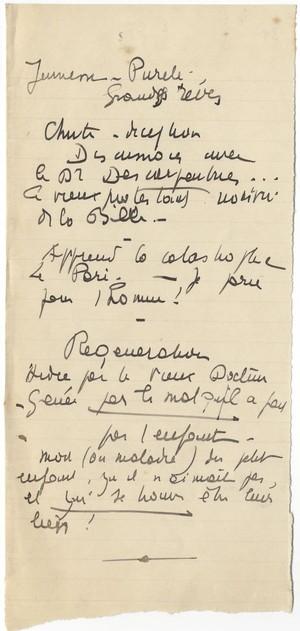 Jeunesse - Pureté
Grands rêves
Chute - déception
Discussions avec
le Dr Descarpentries...
Le vieux protestant nourri
de la Bible -
Apprend la catastrophe
Le Pari. - Je parie
pour l'homme!
-
Régénération
Aidée par le vieux Docteur
Génée par le mal qu'il a fait
par l'enfant -
mort (ou maladie) du petit
enfant, qu'il n'aimait pas,
et qui se trouve être leur